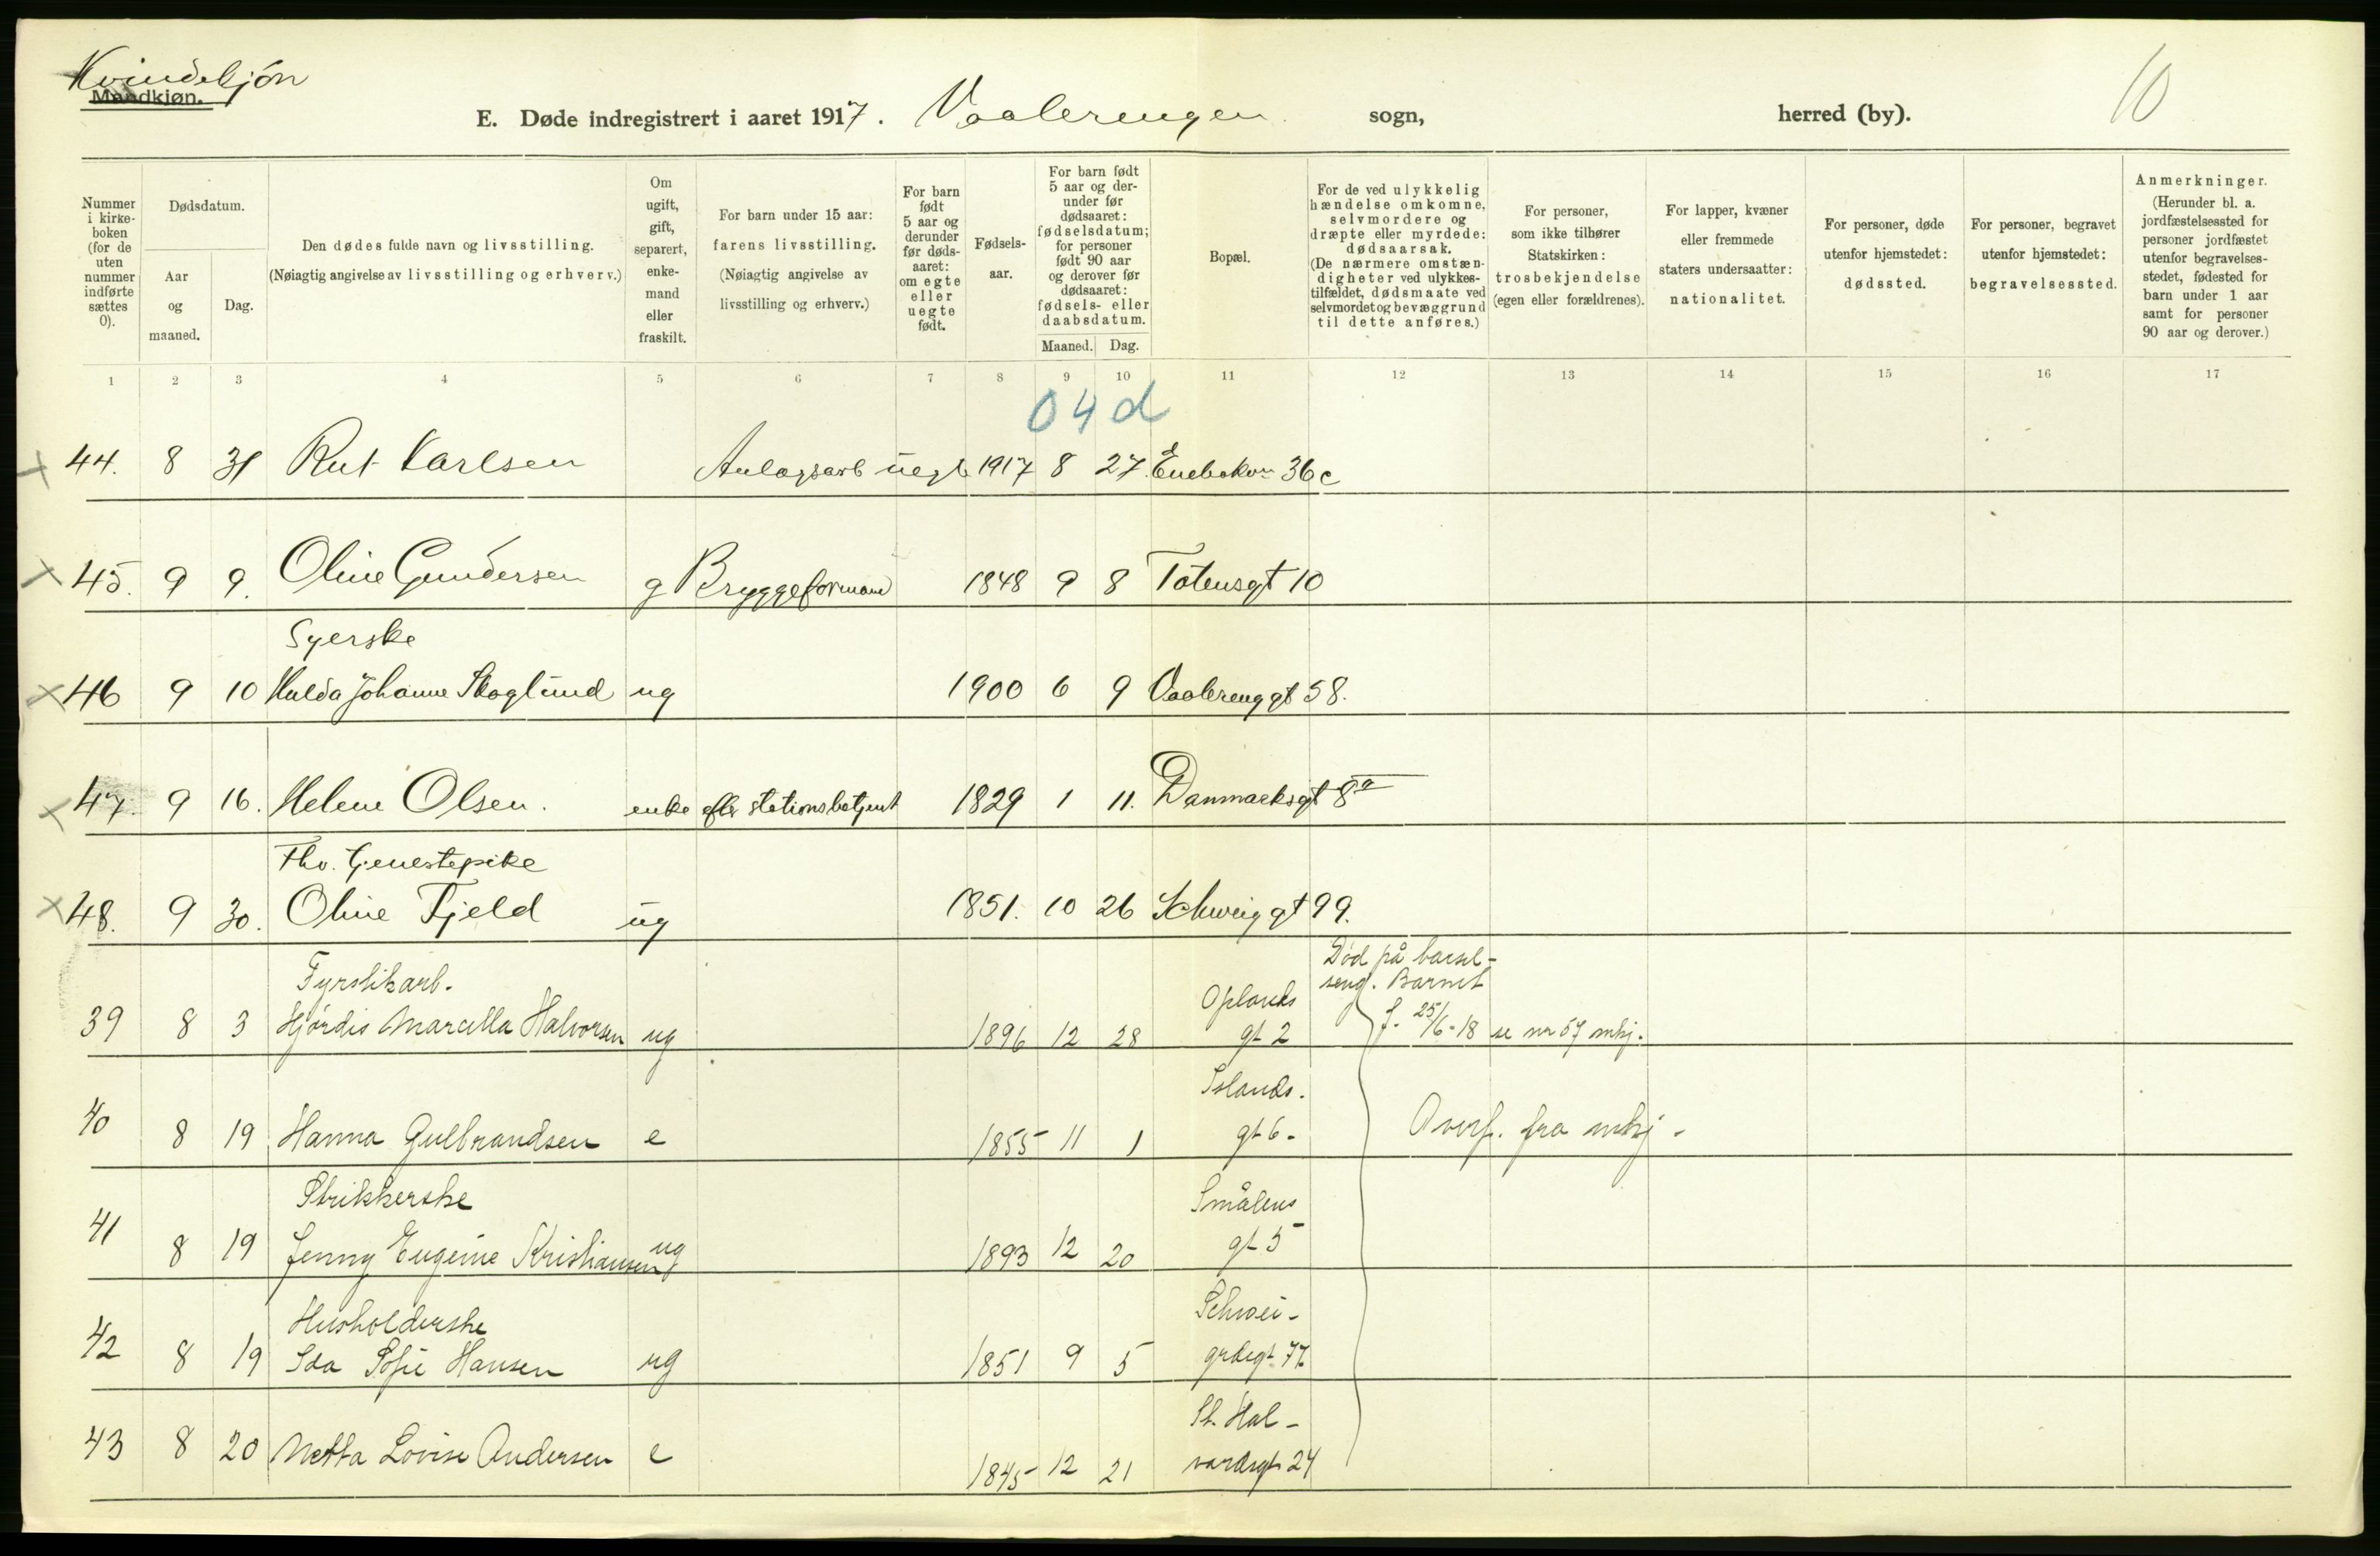 Kvindekjøn
Mandkjøn.
10
E. Døde indregistrert i aaret 1917. Vaalerengen sogn, herred (by).
Nummer i kirke-boken (for de uten nummer indførte sættes 0).
Dødsdatum.
Aar og maaned.
Dag.
Den dødes fulde navn og livsstilling.
(Nøiagtig angivelse av livsstilling og erhverv.)
Om ugift, gift, separert, enke-mand eller fraskilt.
For barn under 15 aar:
farens livsstilling.
(Nøiagtig angivelse av livsstilling og erhverv.)
For barn født 5 aar og derunder før døds-aaret: om egte eller uegte født.
Fødsels-aar.
For barn født 5 aar og der-under før dødsaaret: fødselsdatum; for personer født 90 aar og derover før dødsaaret: fødsels- eller daabsdatum.
Maaned. Dag.
Bopæl.
For de ved ulykkelig hændelse omkomne, selvmordere og dræpte eller myrdede: dødsaarsak.
(De nærmere omstæn-digheter ved ulykkes-tilfældet, dødsmaate ved selvmordet og bevæggrund til dette anføres.)
For personer, som ikke tilhører Statskirken: trosbekjendelse (egen eller forældrenes).
For lapper, kvæner eller fremmede staters undersaatter: nationalitet.
For personer, døde utenfor hjemstedet: dødssted.
For personer, begravet utenfor hjemstedet: begravelsessted.
Anmerkninger.
(Herunder bl. a. jordfæstelsessted for personer jordfæstet utenfor begravelses-stedet, fødested for barn under 1 aar samt for personer 90 aar og derover.)
1 2 3 4 5 6 7 8 9 10 11 12 13 14 15 16 17
04 d
44. 8 31 Rut Karlsen Anlagsarb uegt 1917 8 27. Enebakvn 36c
45. 9 9. Oline Gundersen g Bryggeformand 1848 9 8 Totensgt 10
Syerske
46 9 10 Hulda Johanne Skoglund ug 1900 6 9 Vaalerenggt 58.
47. 9 16. Helene Olsen. enke efter stationsbetjent 1829 1 11. Danmarksgt 8a
Fhv. tjenestepike
48. 9 30. Oline Fjeld ug 1851. 10 26 Schweiggt 99.
Fyrstikarb.
39 8 3 Hjørdis Marcella Halvorsen ug 1896 12 28 Oplands
gt 2
Död på barsel-
seng. Barnet
f. 25/6-18 se nr 57 mkj.
40 8 19 Hanna Gulbrandsen e 1855 11 1 Islands.
gt 6. Overf. fra mkj.
Strikkerske
41 8 19 Jenny Eugenie Kristiansen ug 1893 12 20 Smålens
gt 5
Husholderske
42 8 19 Ida Sofie Hansen ug 1851 9 5 Schwei-
grdsgt 77
43 8 20 Netta Lovise Andersen e 1845 12 21 St. Hal-
vardsgt 24